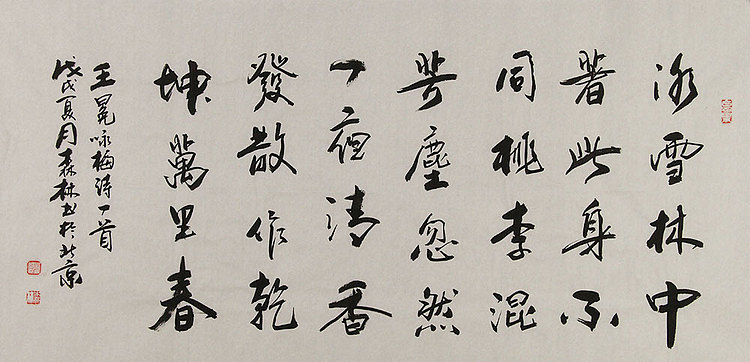 冰雪林中
著此身不
同桃李混
芳塵忽然
一夜清香
發散作乾
坤萬里春
王冕咏梅诗一首
戊戌夏月森林书於北京